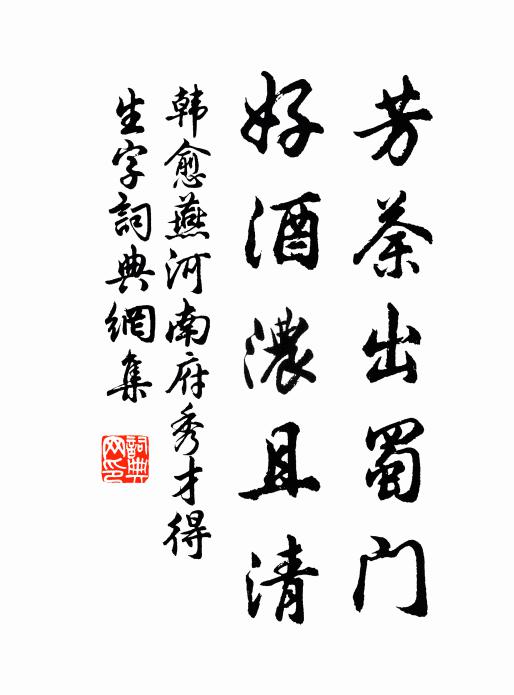 芳茶出蜀门
好酒濃且清
韩愈燕河南府秀才得
生字詞典網集
詞典网印